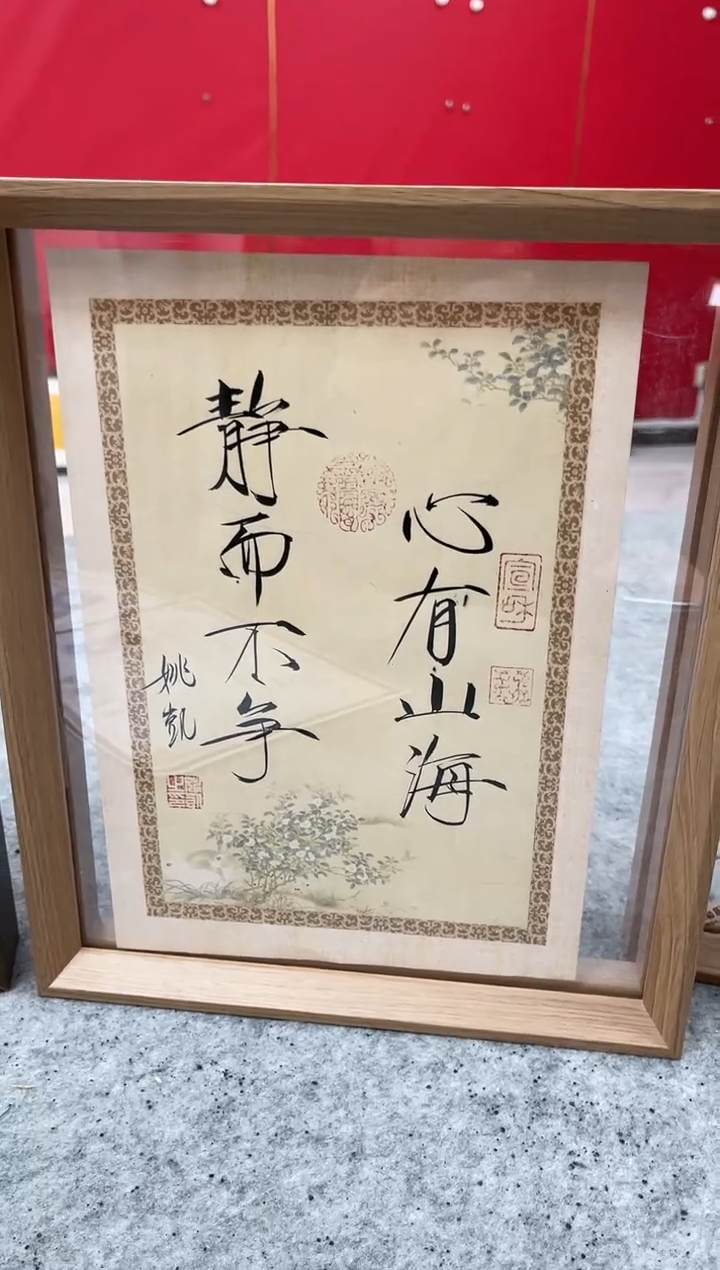 心有山海
静而不争
姚凯
宣和